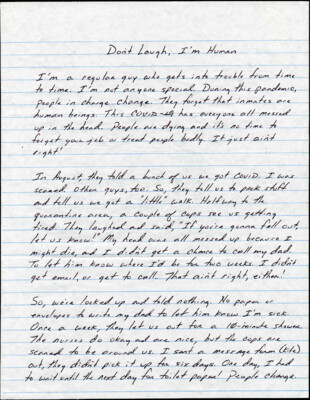 Don't Laugh, I'm Human
I'm a regular guy who gets into trouble from time
to time. I'm not anyone special. During this pandemic,
people in charge change. They forget that inmates are
human beings. This COVID-19 has everyone all messed
up in the head. People are dying and it's no time to
forget your job or treat people badly. It just ain't
right!
In August, they told a bunch of us we got COVID. I was
scared. Other guys, too. So, they tell us to pack stuff
and tell us we got a "little" walk. Halfway to the
quarantine area, a couple of cops see us getting
tired. They laughed and said, "If you're gonna fall out,
let us know!" My head was all messed up because I
might die, and I didn't get a chance to call my dad
to let him know where I'd be for two weeks. I didn't
get email, or get to call. That ain't right, either!
So, we're locked up and told nothing. No paper or
envelopes to write my dad to let him know I'm sick.
Once a week, they let us out for a 10-minute shower.
The nurses do okay and are nice, but the cops are
scared to be around us. I sent a message form (kite)
out, they didn't pick it up for six days. One day, I had
to wait until the next day for toilet paper! People change.